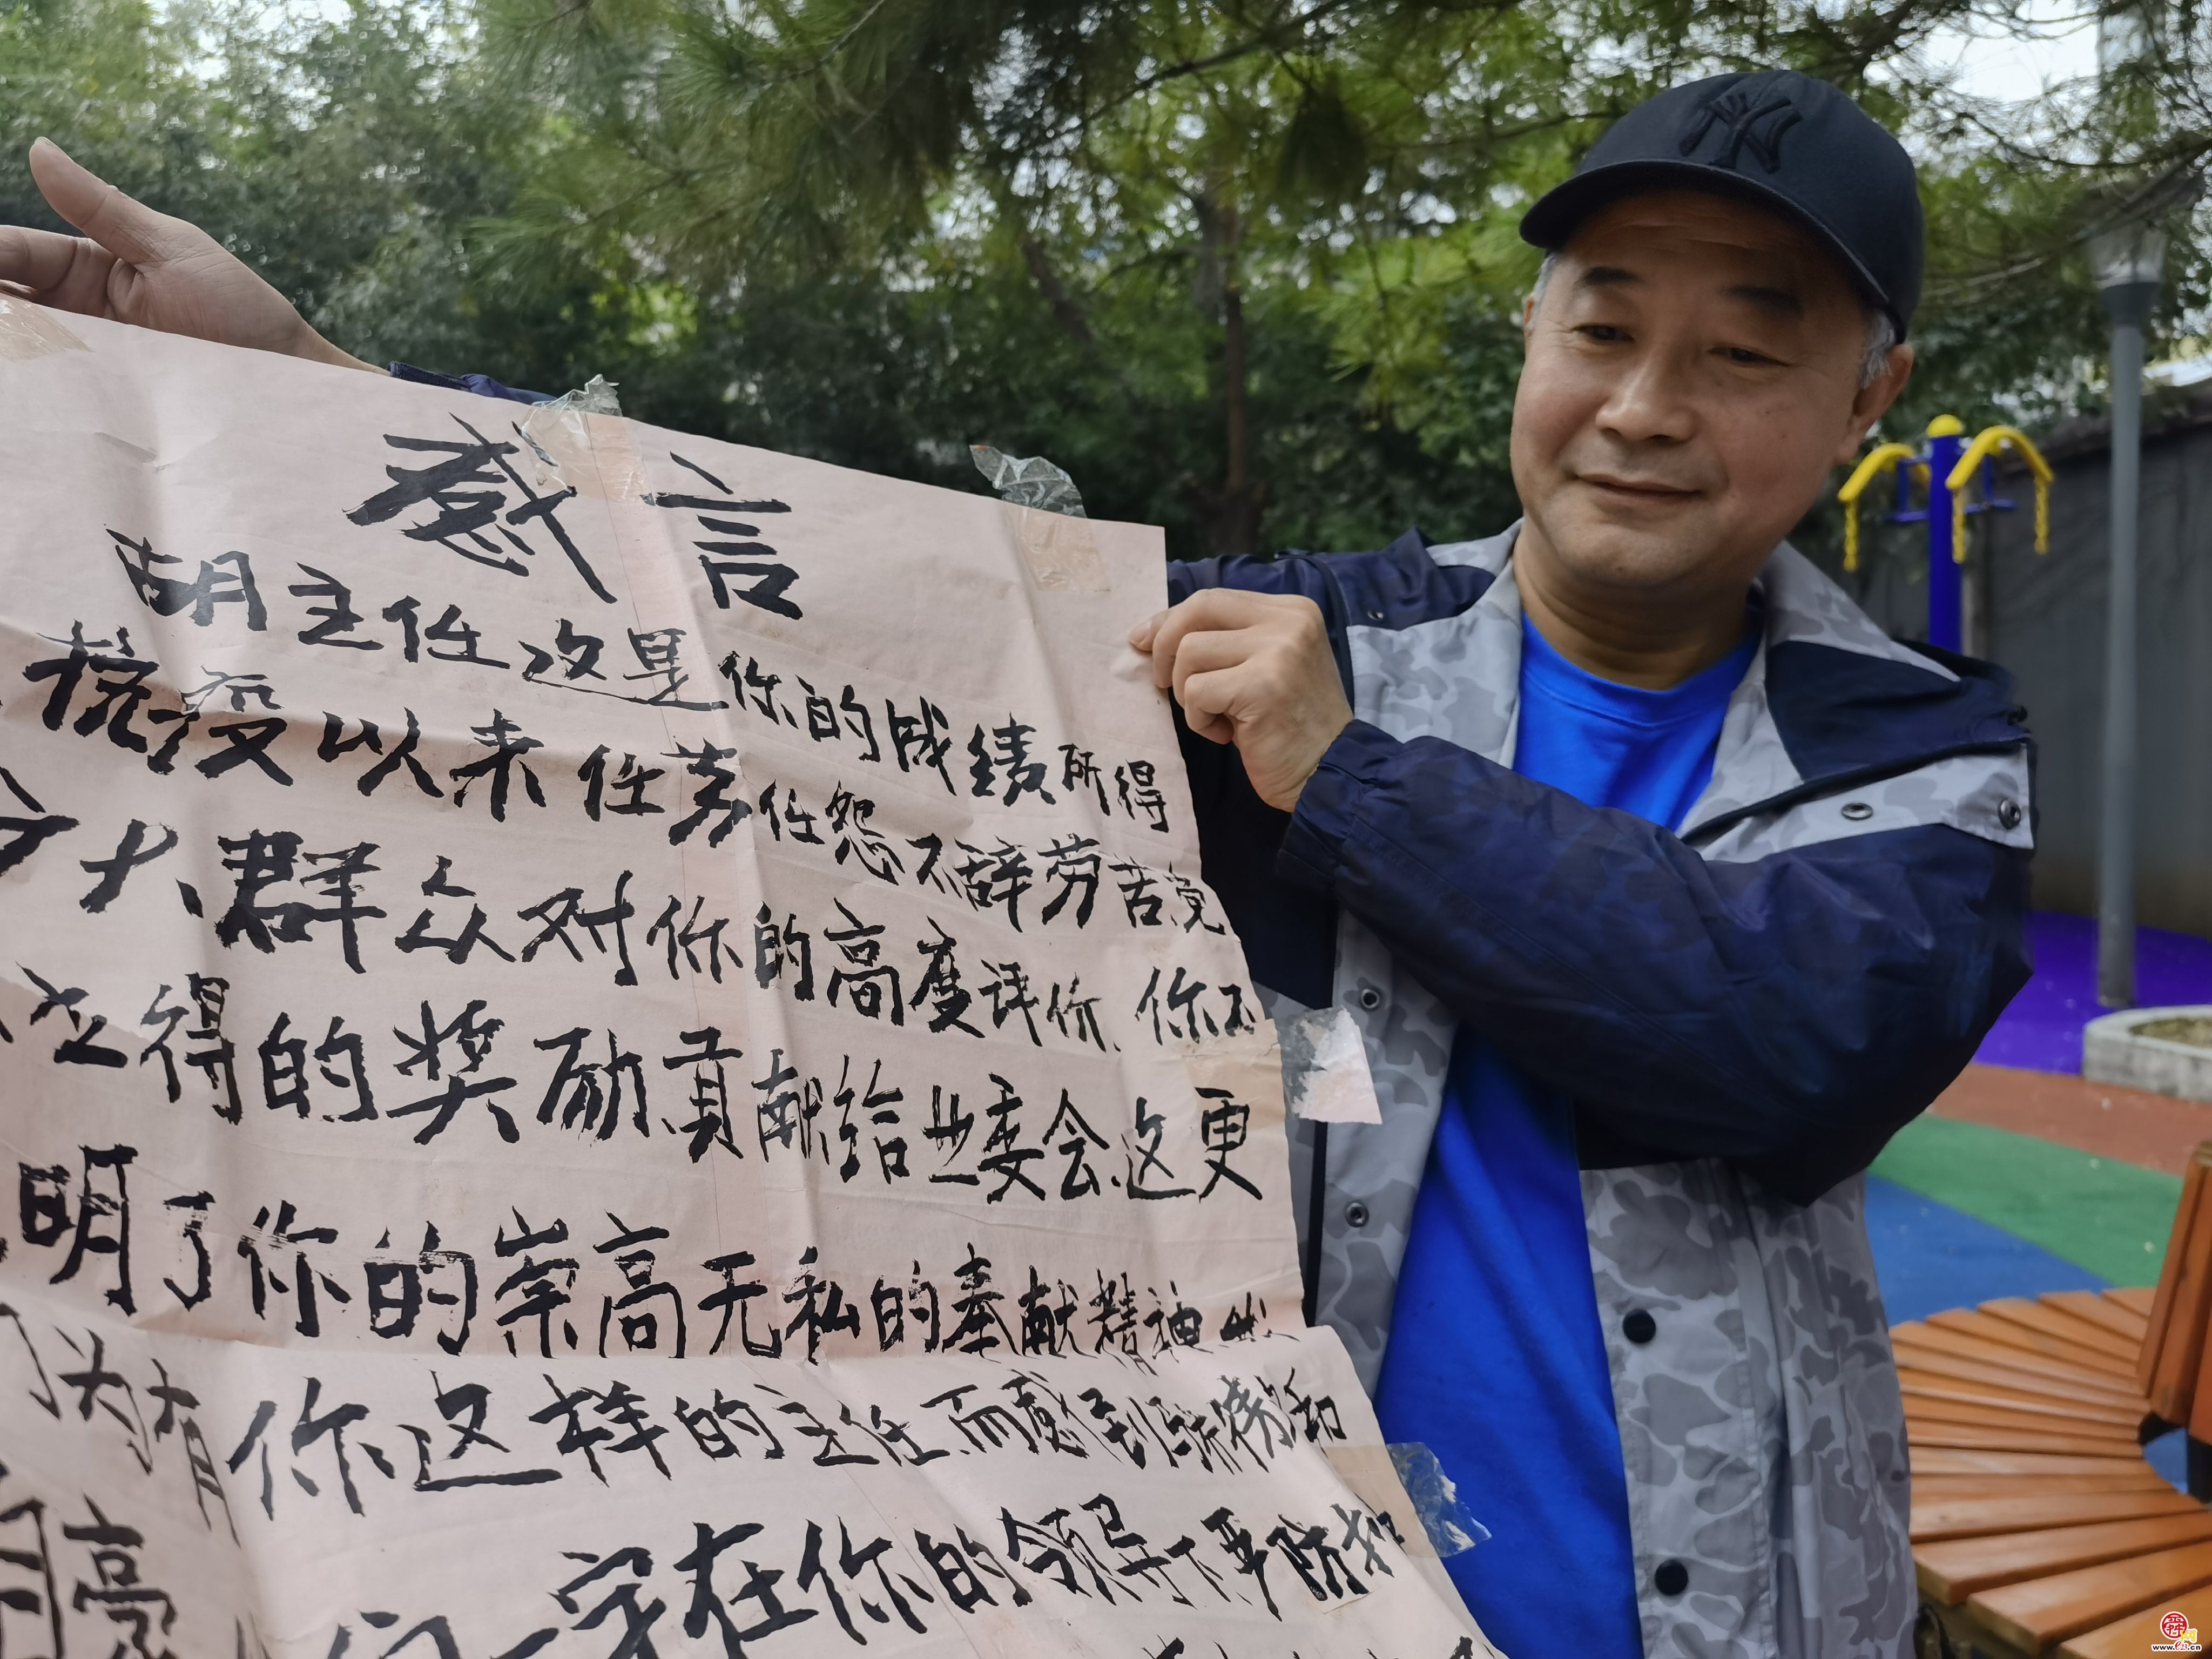 NY
感言
胡主任这是你的成绩所得
抗疫以来任劳任怨不辞劳苦党
大群众对你的高度评价.你不
得的奖励贡献给业委会.这更
明了你的崇高无私的奉献精神
为有你这样的主任.而感到骄傲
们一定在你的领导下严防
亮
舜网
www.e23.cn